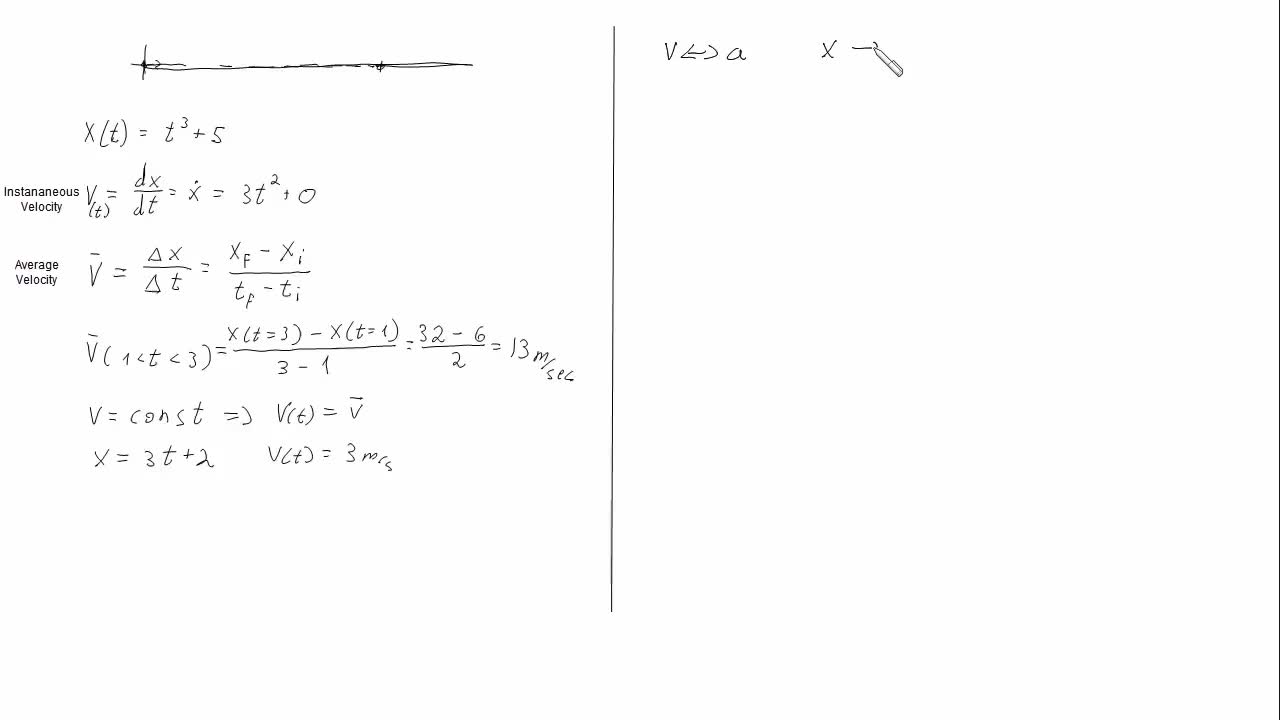 X(t) = t³ + 5
Instananeous Velocity V(t) = dx/dt = ẋ = 3t² + 0
Average Velocity V̄ = Δx/Δt = (x_F − x_i)/(t_F − t_i)
V̄(1<t<3) = (X(t=3) − X(t=1))/(3 − 1) = (32 − 6)/2 = 13 m/sec
V = const ⇒ V(t) = V̄
X = 3t+2 V(t) = 3 m/s
V ⟷ a X →